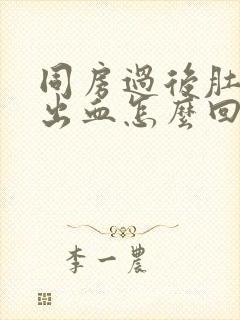 同房過後肚
出血怎麼回
李一農